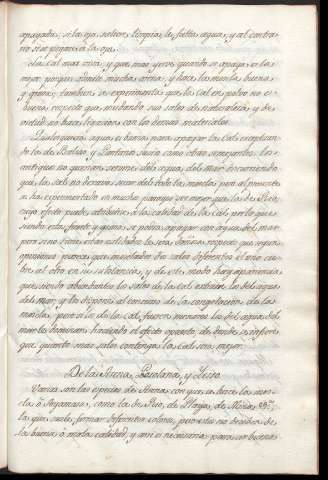 apagada, si la oja saliere limpia, le falta agua, y al contra-
rio si se pegare à la oja.
La Cal mas viva, y que mas yerve quando se apaga, es la
mejor porque admite mucha arena, y hace la mezcla buena,
y grasa; tambien se experimenta que la Cal en polvo no es
buena respecto que mudando sus sales de naturaleza y de
virtud no hace ligazon con los demas materiales.
Qualesquiera agua es buena para apagar la Cal, exceptuan-
do la de Balsas, y Pantanos sucia como otras semejantes. Los
antiguos no querian servirse del agua del mar discurriendo
que las sales no dexavan secar del todo la mezcla; pero al presente
se ha experimentado en muchos parages ser mejor que la de Rio,
cuyo efecto puede atribuirse à la calidad de la Cal, por lo que
siendo esta fuerte y grasa, se podra apagar con agua del mar
pero si no tubiera
opiniones parece que mezclados dos sales diferentes el uno cu-
bre al otro en su substancia, y de este modo hay apariencia
que siendo abundantes los sales de la Cal
del mar, y los dispone al concurso de la congelacion de las
mezclas, pero si los de la Cal fuesen menores los del agua del
mar los dominan, haciendo el efecto opuesto, de donde se infiere
que quanto mas sales contenga la Cal sera mejor.
De la Arena, Puzolana, y Yesso
Varias son las especies de Arena con que se hace la mez-
cla ò Argamasa, como la de Rio, de Playa, de Mina, &c.
la que suele formar diferentes colores, pero esto no decide de
la buena ò mala calidad, y assi es necesario, para ser buena